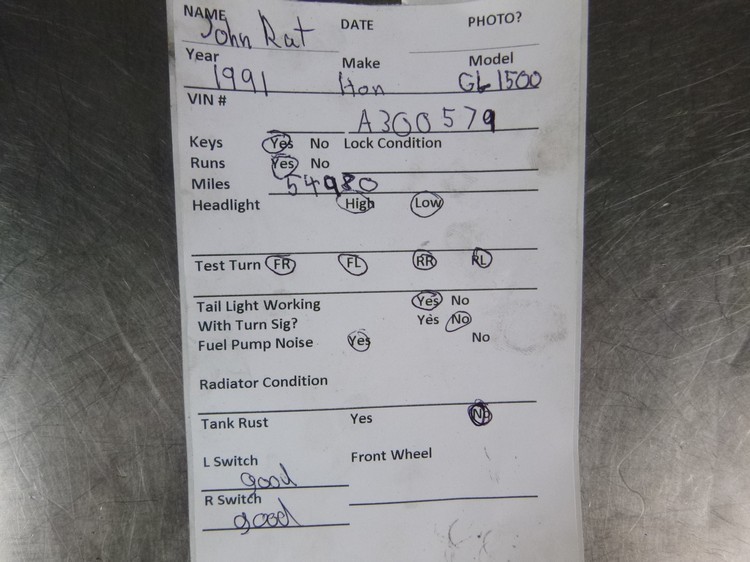 NAME John Rat DATE PHOTO?
Year 1991 Make Hon Model GL1500
VIN # A300579
Keys Yes No Lock Condition
Runs Yes No
Miles 54980
Headlight High Low
Test Turn FR FL RR RL
Tail Light Working Yes No
With Turn Sig? Yes No
Fuel Pump Noise Yes No
Radiator Condition
Tank Rust Yes No
L Switch good Front Wheel
R Switch good